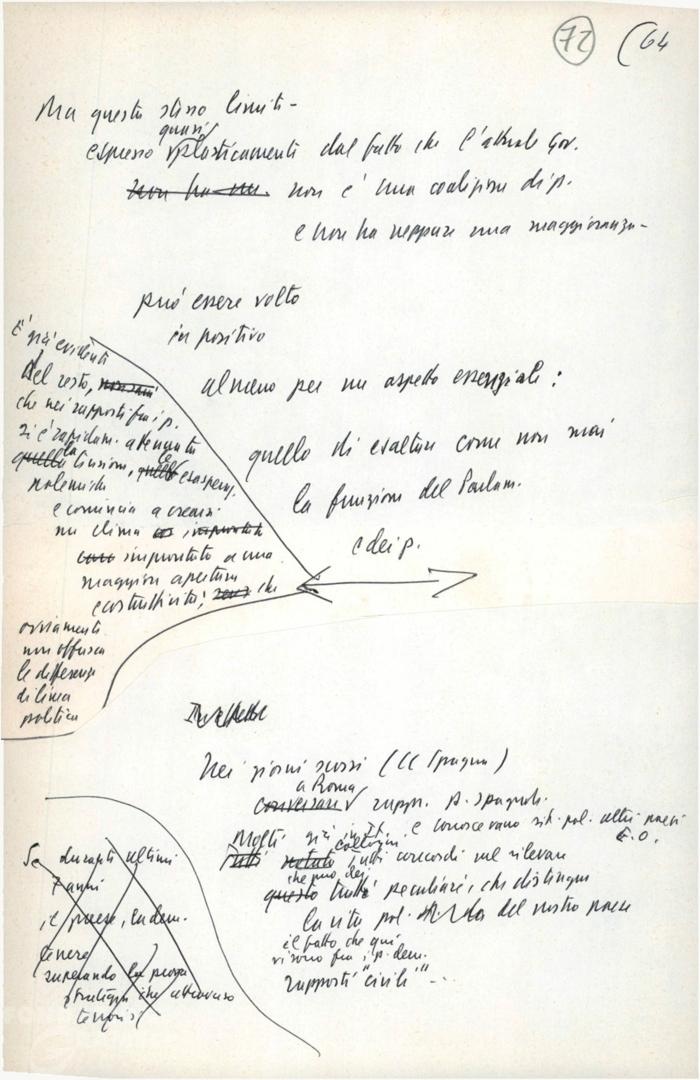 72 (64
Ma questo stesso limite -
quasi
espresso plasticamente dal fatto che l'attuale Gov.
non ha una non è una coalizione di p.
e non ha neppure una maggioranza -
può essere volto
in positivo
almeno per un aspetto essenziale:
quello di esaltare come non mai
la funzione del Parlam.
e dei p.
È già evidente
Del resto,
che nei rapporti fra i p.
si è rapidam. attenuata
quella la tensione, quelle le esasperaz.
polemiche
e comincia a crearsi
un clima improntato
improntato a una
maggiore apertura
e costruttività; che
ovviamente
non offusca
le differenze
di linea
politica
Nei giorni scorsi (CC Spagna)
a Roma
conversare rappr. p. spagnoli.
Molti già e conoscevano sit. pol. altri paesi
E.O.
Tutti tutti concordi nel rilevare
questo tratto peculiare, che distingue
la vita pol. del nostro paese
il fatto che qui
vi sono fra i p. dem.
rapporti "civili" - .
Se durante ultimi
7 anni
il paese, la dem.
tenere
superando la prova
strategia che attraverso